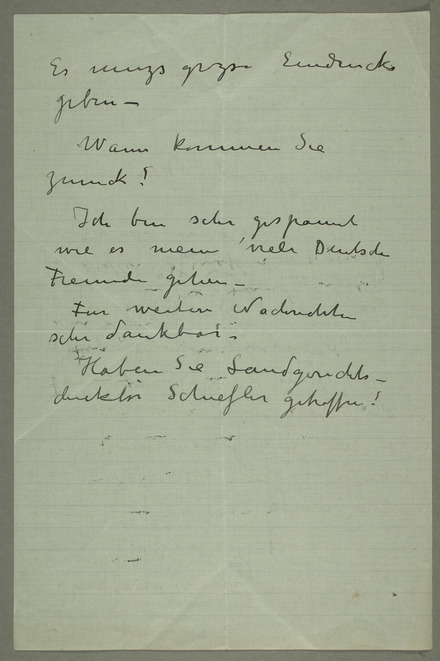 Es muzs grozse Eindrucke
geben –
Wann kommen Sie
zuruck!
Ich bin sehr gespannt
wie es mein viele Deutsche
Freunde gehen –
Fur weitere Nachrichten
sehr dankbar –
Haben Sie Landgerichts–
direktor Schiefler getroffen!